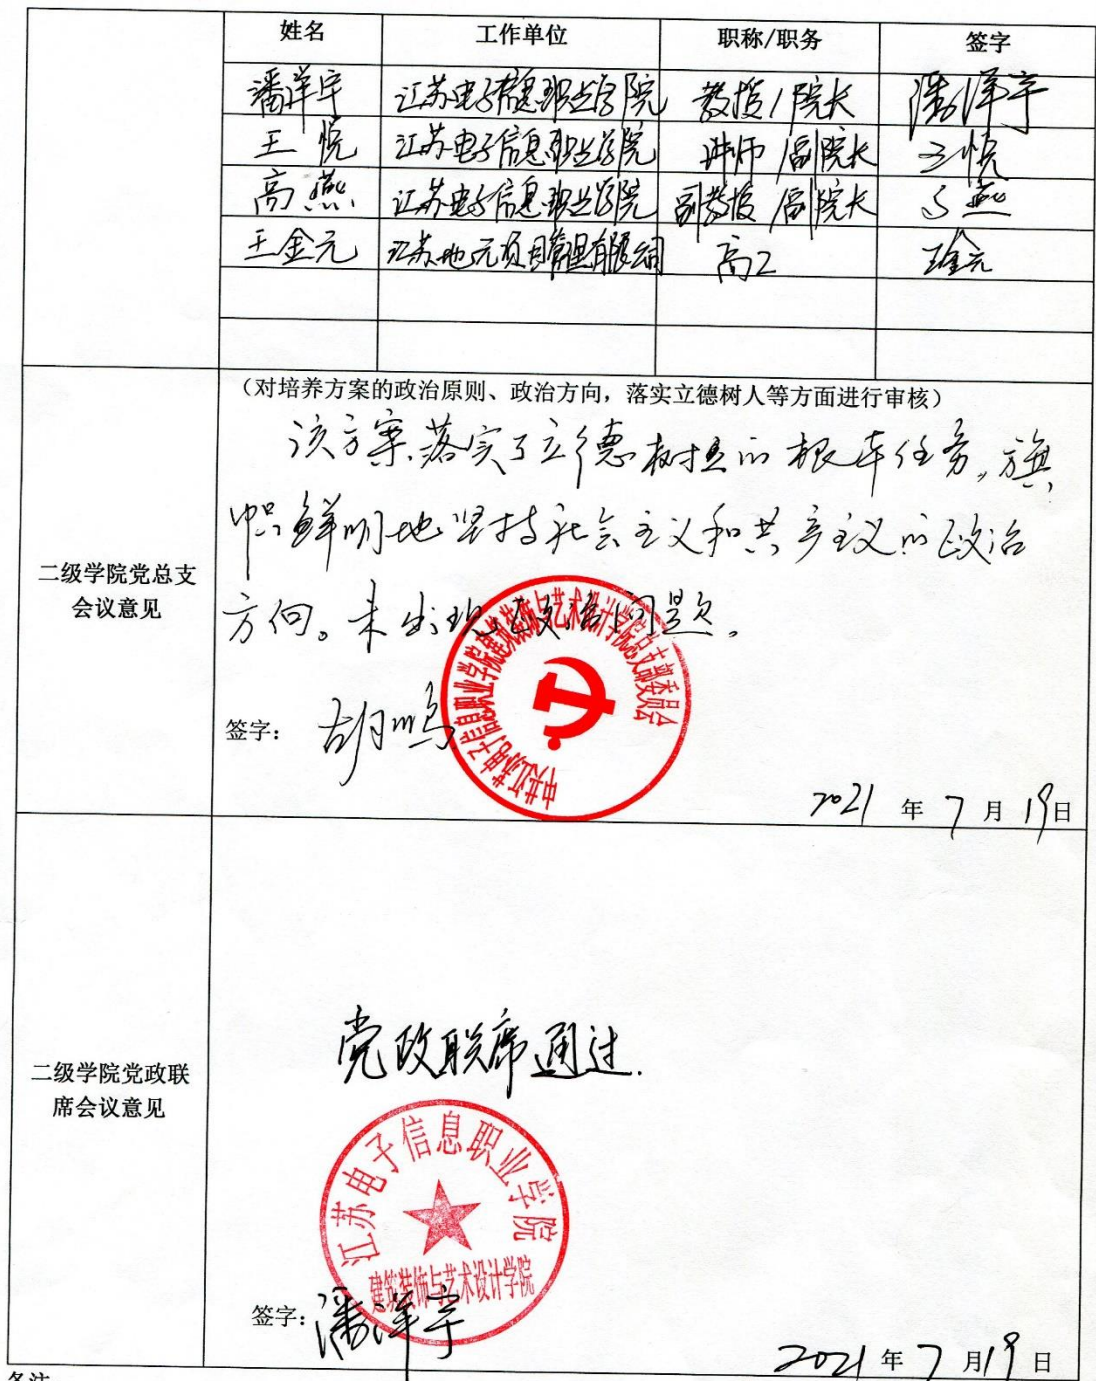 姓名 工作单位 职称/职务 签字
潘洋宇 江苏电子信息职业学院 教授/院长 潘洋宇
王悦 江苏电子信息职业学院 讲师/副院长 王悦
高燕 江苏电子信息职业学院 副教授/副院长 高燕
王金元 江苏地元项目管理有限公司 高工 王金元
(对培养方案的政治原则、政治方向，落实立德树人等方面进行审核)
该方案落实了立德树人的根本任务，旗
帜鲜明地坚持社会主义和共产主义的政治
方向。未出现政治问题。
二级学院党总支
会议意见
中共江苏电子信息职业学院建筑装饰与艺术设计学院总支部委员会
签字：胡鸣
2021 年 7 月 19日
党政联席通过.
二级学院党政联
席会议意见
江苏电子信息职业学院
建筑装饰与艺术设计学院
签字：潘洋宇
2021 年 7 月 19 日